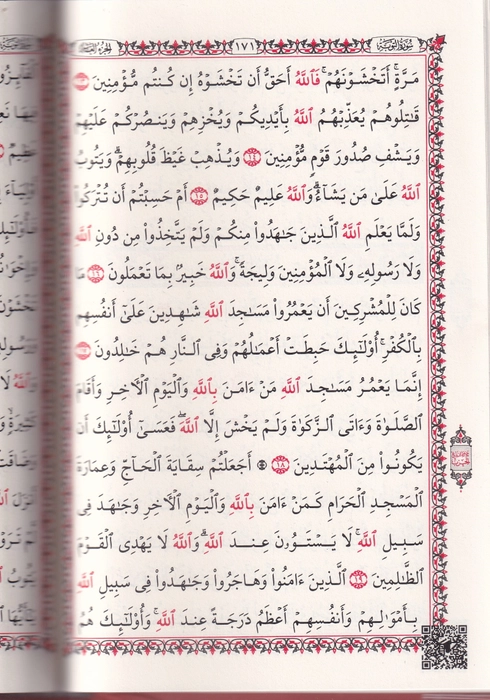 سُورَةُ التَّوْبَةِ ١٧١ الجُزْءُ العَاشِرُ
مَرَّةٍۚ أَتَخْشَوْنَهُمْۚ فَٱللَّهُ أَحَقُّ أَن تَخْشَوْهُ إِن كُنتُم مُّؤْمِنِينَ ١٣
قَٰتِلُوهُمْ يُعَذِّبْهُمُ ٱللَّهُ بِأَيْدِيكُمْ وَيُخْزِهِمْ وَيَنصُرْكُمْ عَلَيْهِمْ
وَيَشْفِ صُدُورَ قَوْمٍ مُّؤْمِنِينَ ١٤ وَيُذْهِبْ غَيْظَ قُلُوبِهِمْۗ وَيَتُوبُ
ٱللَّهُ عَلَىٰ مَن يَشَآءُۗ وَٱللَّهُ عَلِيمٌ حَكِيمٌ ١٥ أَمْ حَسِبْتُمْ أَن تُتْرَكُوا۟
وَلَمَّا يَعْلَمِ ٱللَّهُ ٱلَّذِينَ جَٰهَدُوا۟ مِنكُمْ وَلَمْ يَتَّخِذُوا۟ مِن دُونِ ٱللَّهِ
وَلَا رَسُولِهِۦ وَلَا ٱلْمُؤْمِنِينَ وَلِيجَةًۚ وَٱللَّهُ خَبِيرٌۢ بِمَا تَعْمَلُونَ ١٦ مَا
كَانَ لِلْمُشْرِكِينَ أَن يَعْمُرُوا۟ مَسَٰجِدَ ٱللَّهِ شَٰهِدِينَ عَلَىٰٓ أَنفُسِهِم
بِٱلْكُفْرِۚ أُو۟لَٰٓئِكَ حَبِطَتْ أَعْمَٰلُهُمْ وَفِى ٱلنَّارِ هُمْ خَٰلِدُونَ ١٧
إِنَّمَا يَعْمُرُ مَسَٰجِدَ ٱللَّهِ مَنْ ءَامَنَ بِٱللَّهِ وَٱلْيَوْمِ ٱلْءَاخِرِ وَأَقَامَ
ٱلصَّلَوٰةَ وَءَاتَى ٱلزَّكَوٰةَ وَلَمْ يَخْشَ إِلَّا ٱللَّهَۖ فَعَسَىٰٓ أُو۟لَٰٓئِكَ أَن
يَكُونُوا۟ مِنَ ٱلْمُهْتَدِينَ ١٨ ۞ أَجَعَلْتُمْ سِقَايَةَ ٱلْحَآجِّ وَعِمَارَةَ
ٱلْمَسْجِدِ ٱلْحَرَامِ كَمَنْ ءَامَنَ بِٱللَّهِ وَٱلْيَوْمِ ٱلْءَاخِرِ وَجَٰهَدَ فِى
سَبِيلِ ٱللَّهِۚ لَا يَسْتَوُۥنَ عِندَ ٱللَّهِۗ وَٱللَّهُ لَا يَهْدِى ٱلْقَوْمَ
ٱلظَّٰلِمِينَ ١٩ ٱلَّذِينَ ءَامَنُوا۟ وَهَاجَرُوا۟ وَجَٰهَدُوا۟ فِى سَبِيلِ ٱللَّهِ
بِأَمْوَٰلِهِمْ وَأَنفُسِهِمْ أَعْظَمُ دَرَجَةً عِندَ ٱللَّهِۚ وَأُو۟لَٰٓئِكَ هُمُ